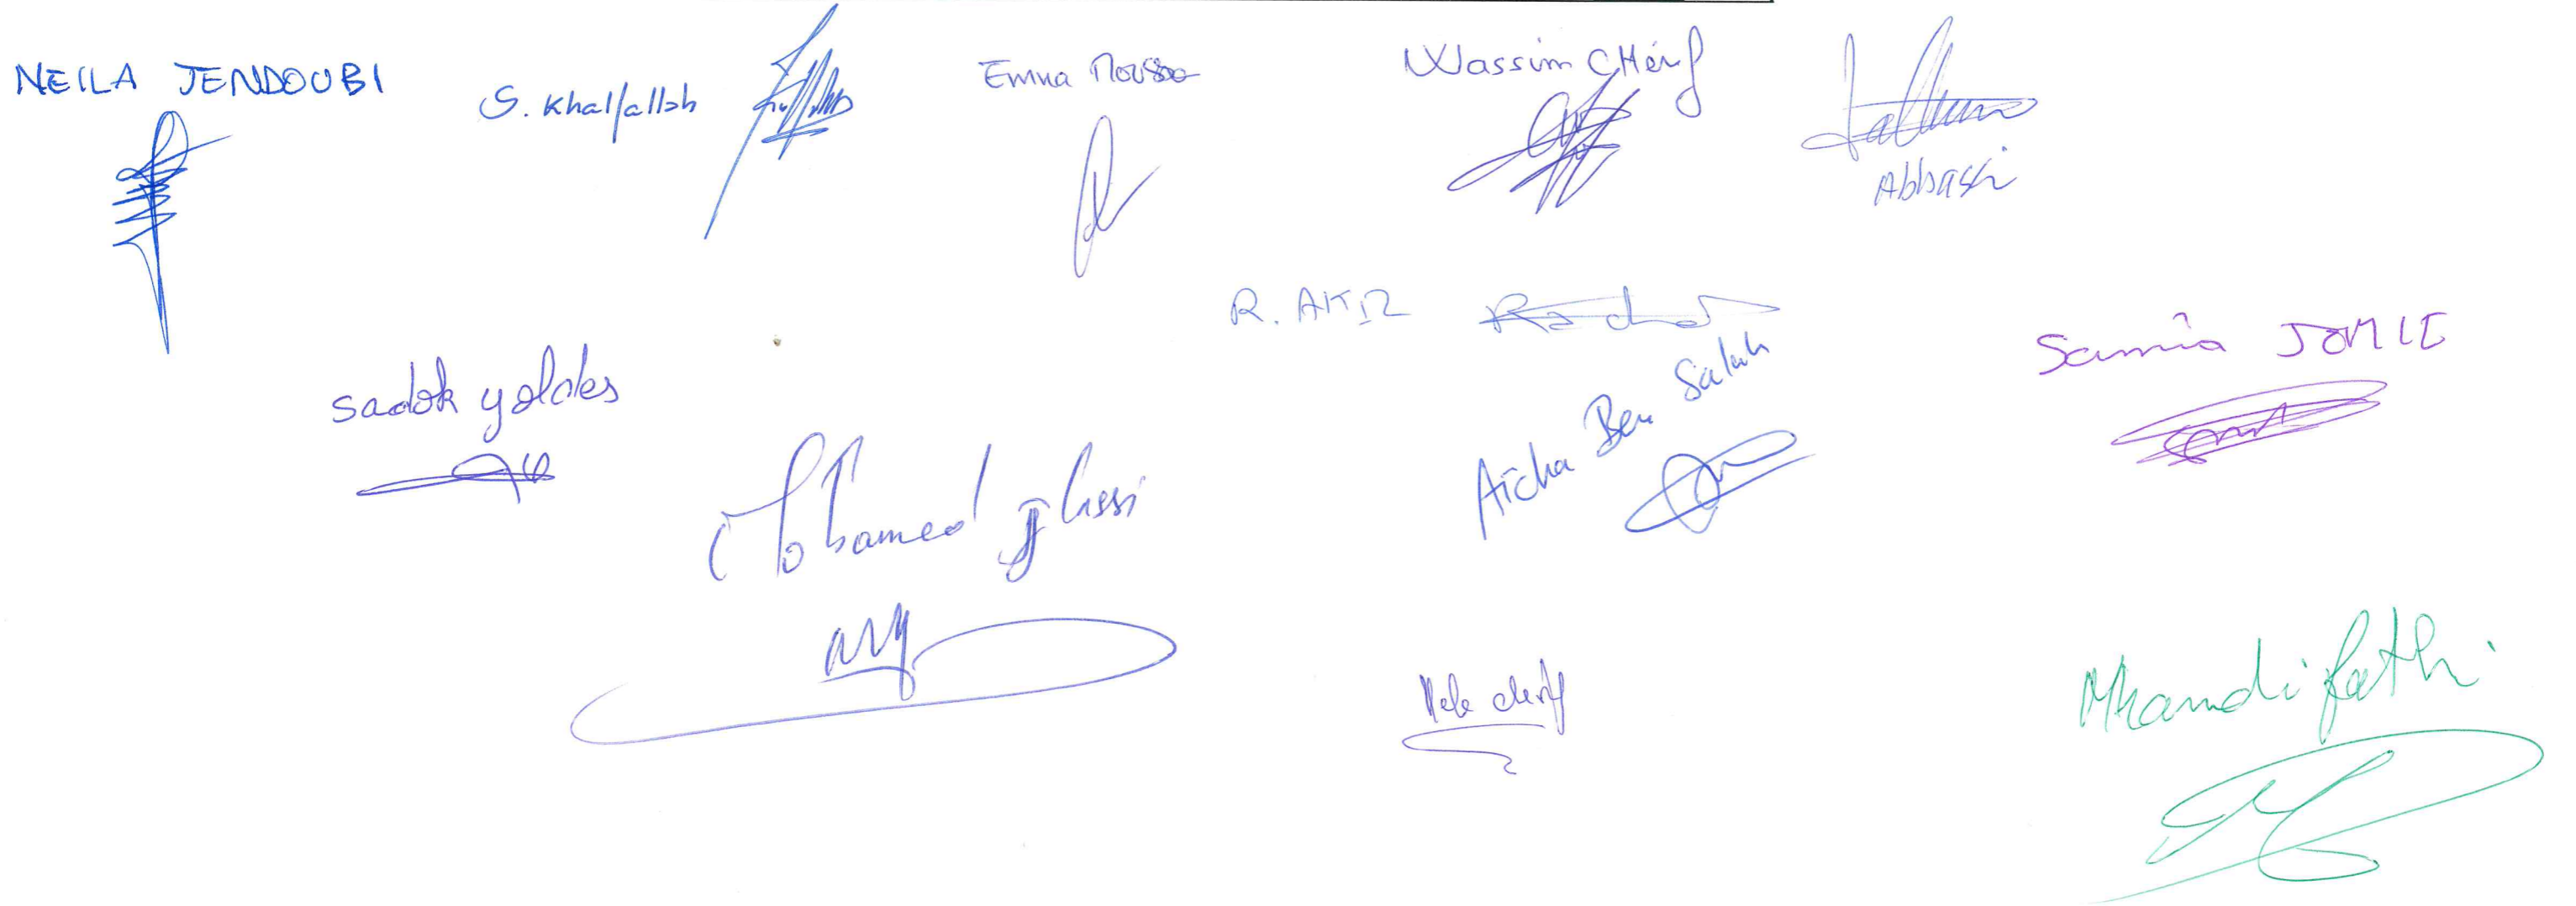 NEILA JENDOUBI
S. Khalfallah
Emna Moussa
Wassim CHérif
Abbassi
R. AKIR
Samia JOMLI
Sadok
Aicha Ben Salah
Mohamed
cherif
Mhamdi fathi